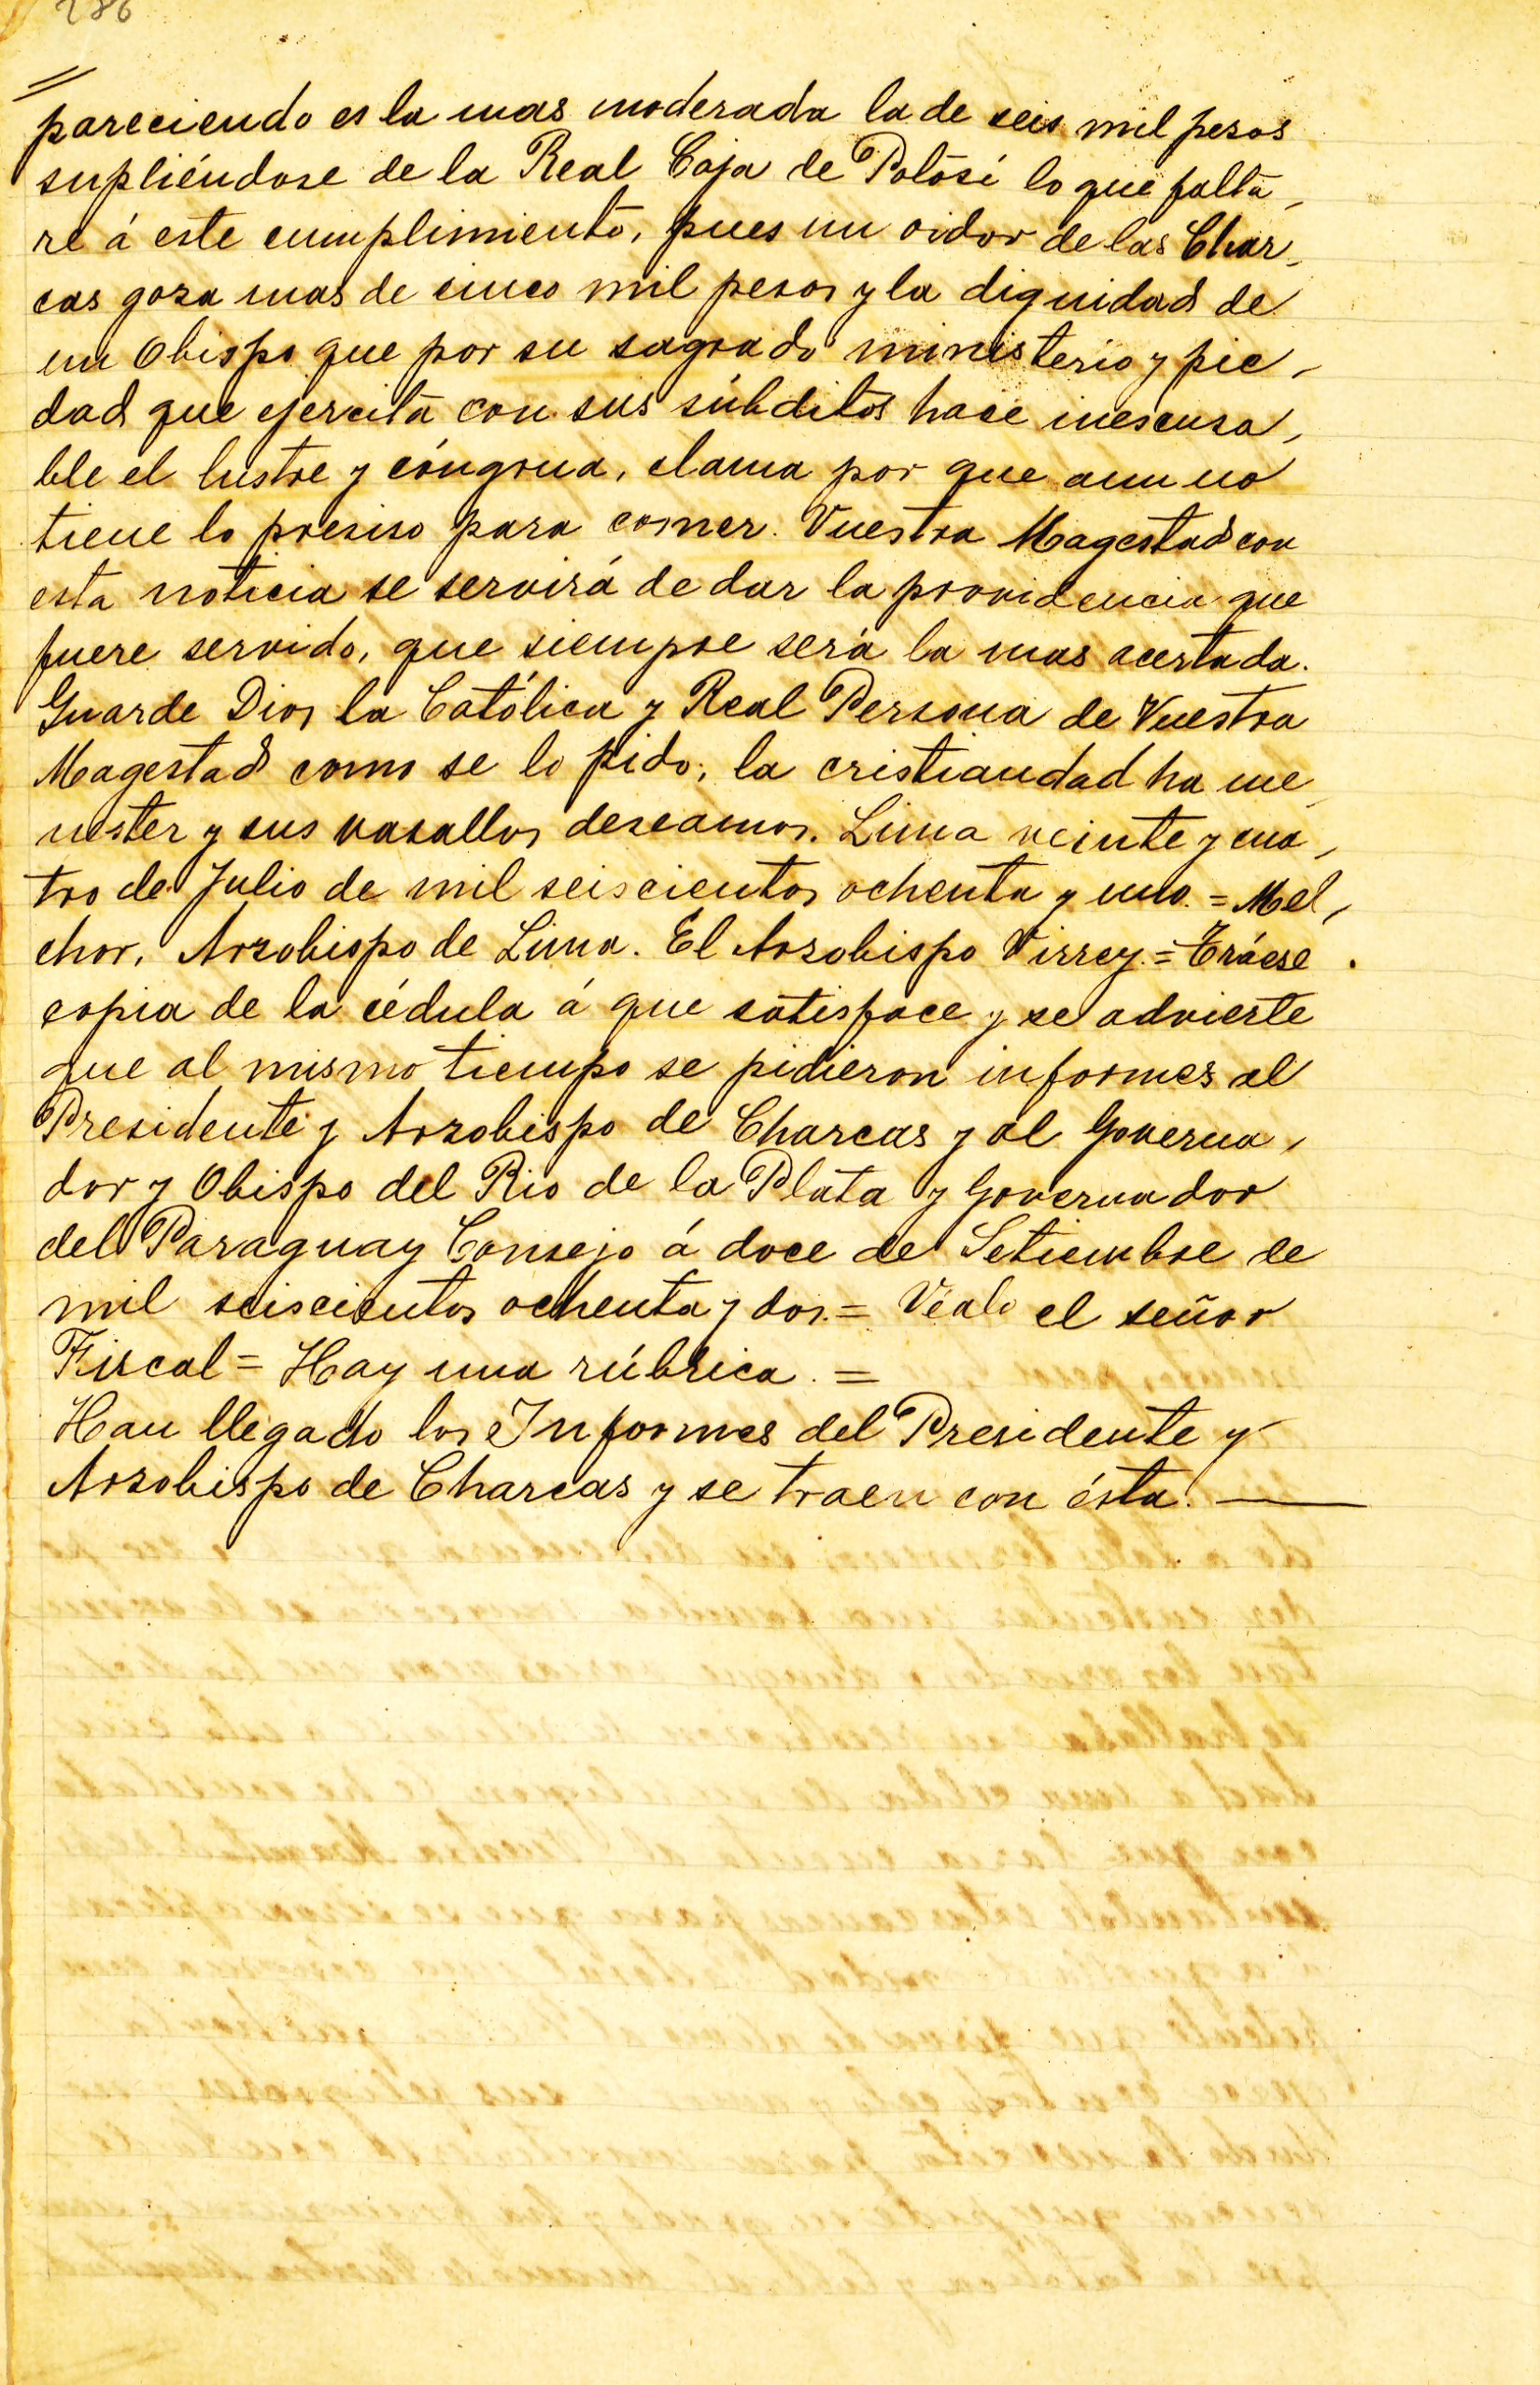 286
pareciendo es la mas moderada la de seis mil pesos
supliéndose de la Real Caja de Potosí lo que falta-
re á este cumplimiento, pues un oidor de las Char-
cas goza mas de cinco mil pesos y la dignidad de
un Obispo que por su sagrado ministerio y pie-
dad que ejercita con sus súbditos hace inescusa-
ble el lustre y cóngrua, clama por que aun no
tiene lo preciso para comer. Vuestra Magestad con
esta noticia se servirá de dar la providencia que
fuere servido, que siempre será la mas acertada.
Guarde Dios la Católica y Real Persona de Vuestra
Magestad como se lo pido, la cristiandad ha me-
nester y sus vasallos deseamos. Lima veinte y cua-
tro de Julio de mil seiscientos ochenta y uno. = Mel-
chor, Arzobispo de Lima. El Arzobispo Virrey. = Tráese
copia de la cédula á que satisface y se advierte
que al mismo tiempo se pidieron informes al
Presidente y Arzobispo de Charcas y al Governa-
dor y Obispo del Rio de la Plata y Governador
del Paraguay Consejo á doce de Setiembre de
mil seiscientos ochenta y dos. = Véalo el señor
Fiscal = Hay una rúbrica. =
Han llegado los Informes del Presidente y
Arzobispo de Charcas y se traen con ésta. —